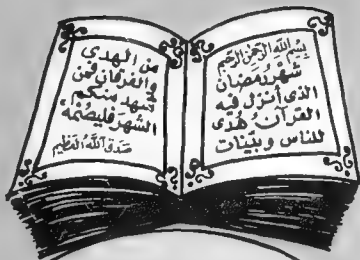 بِسْمِ اللهِ الرَّحْمٰنِ الرَّحِيم
شَهْرُ رَمَضَان
الذى أنزل فيه
القرآن هُدًى
للناس وبيّنات
من الهدى
والفرقان فمن
شهد منكم
الشهرَ فليصُمْهُ
صدق الله العظيم